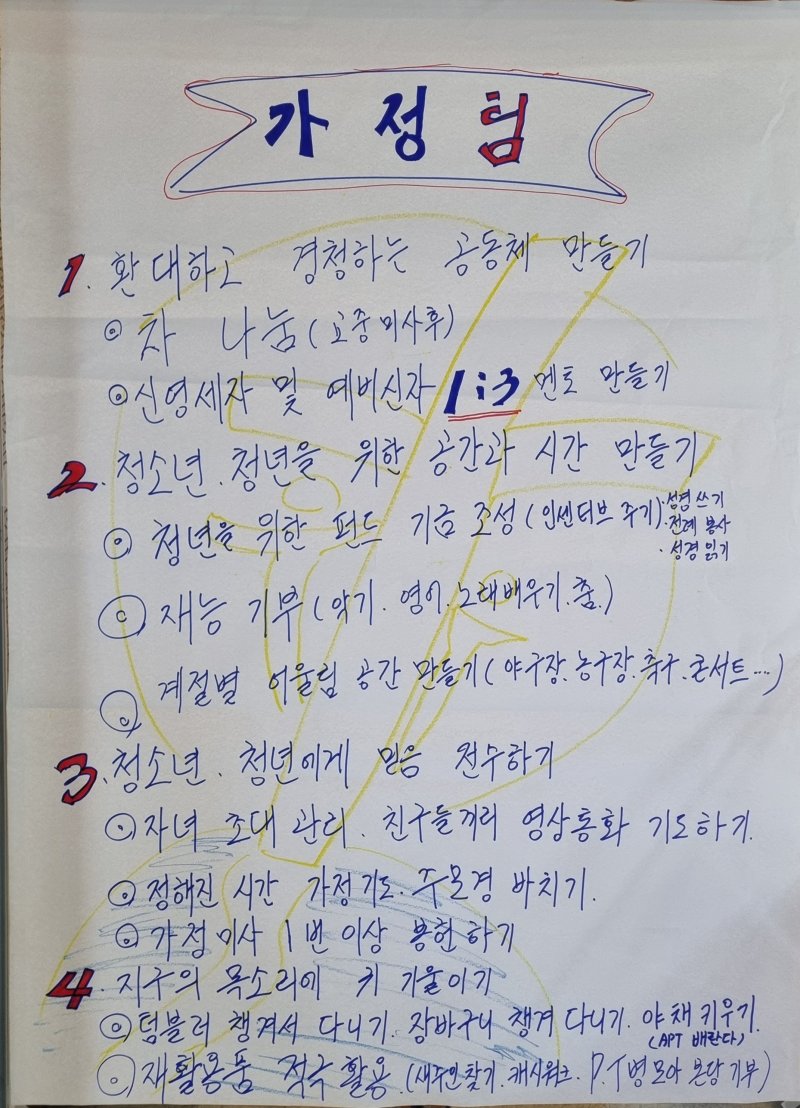 가정팀
1. 환대하고 경청하는 공동체 만들기
◎ 차 나눔 (교중미사후)
◎ 신영세자 및 예비신자 1:3 멘토 만들기
2. 청소년.청년을 위한 공간과 시간 만들기
◎ 청년을 위한 펀드 기금 조성 (인센티브 주기)
·성경 쓰기
·전례 봉사
·성경 읽기
◎ 재능 기부 (악기. 영어. 노래배우기. 춤.)
◎ 계절별 어울림 공간 만들기 (야구장. 농구장. 축구. 콘서트 ...)
3. 청소년. 청년에게 믿음 전수하기
◎ 자녀 초대 관리. 친구들끼리 영상통화 기도하기.
◎ 정해진 시간 가정기도. 주모경 바치기.
◎ 가정미사 1번 이상 봉헌하기
4. 지구의 목소리에 귀 기울이기
◎ 텀블러 챙겨서 다니기. 장바구니 챙겨 다니기. 야채 키우기.
(APT 배란다)
◎ 재활용품 적극 활용. (새주인찾기. 캐시워크. P.T병 모아 본당 기부)